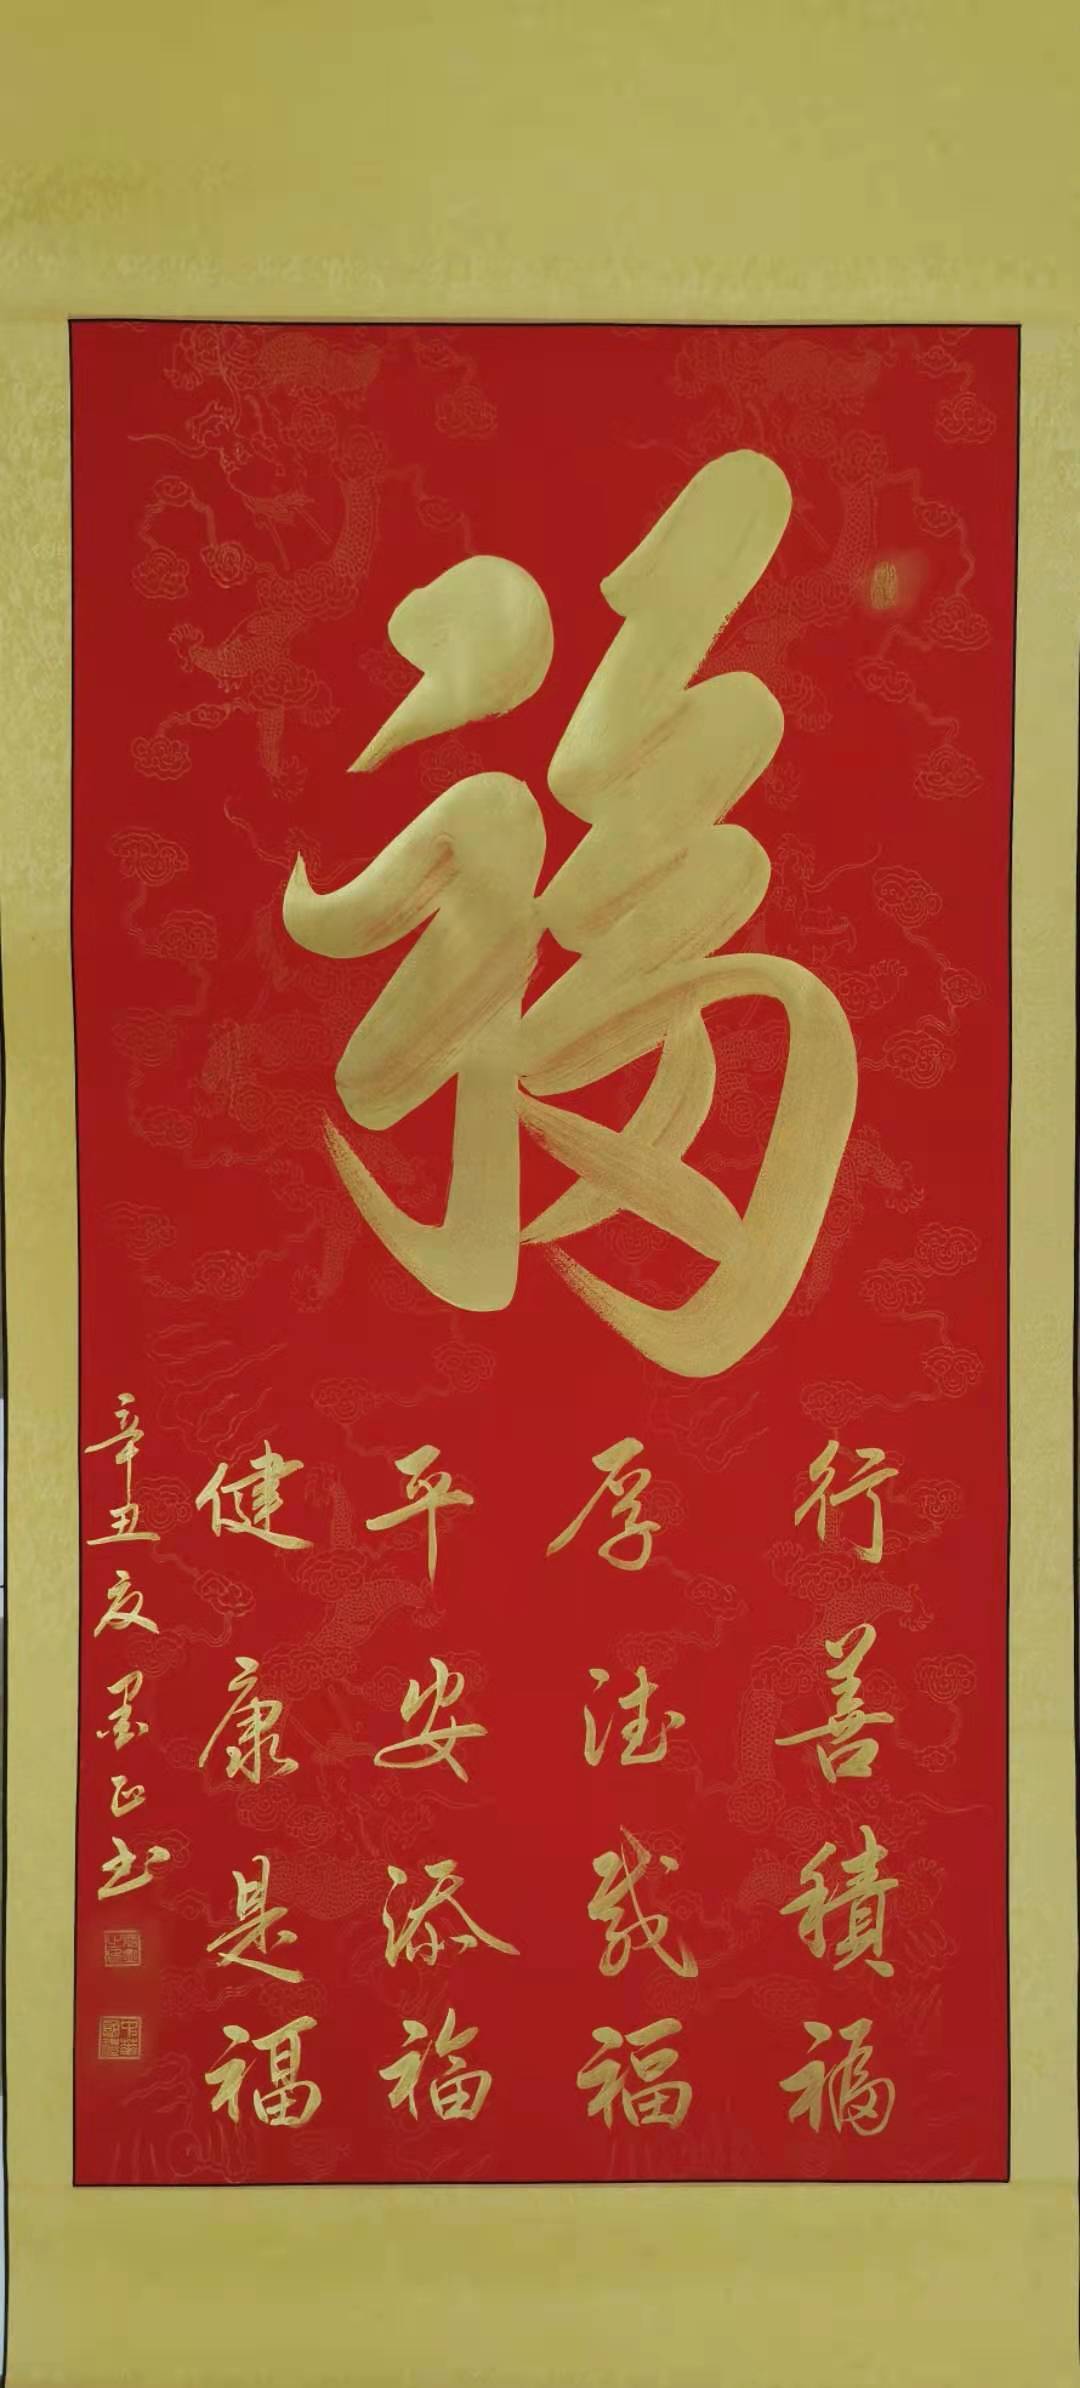 福
行善積福
厚德载福
平安添福
健康是福
辛丑夏墨正书